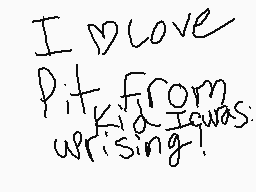 I ♡ Love
Pit from
Kid Icwas:
uprising!